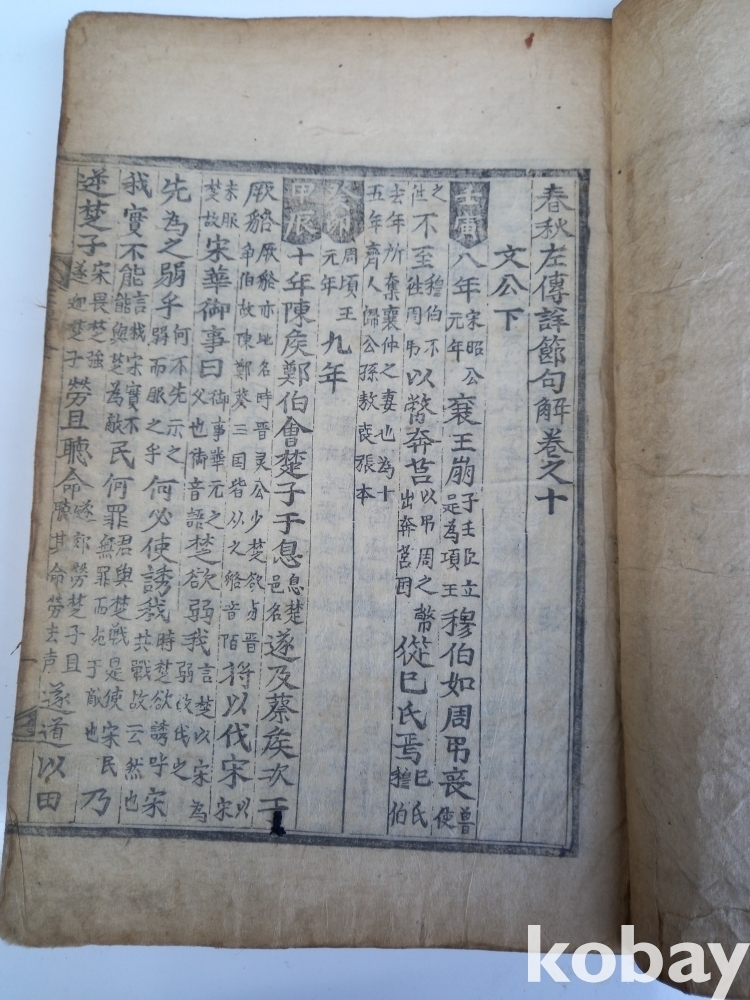 春秋左傳詳節句解卷之十
文公下
八年宋昭公元年襄王崩子壬臣立是為項王穆伯如周弔喪魯使
之徃不至穆伯不徃周弔以幣奔莒以弔周之幣出奔莒国從巳氏焉巳氏穆伯
去年所棄襄仲之妻也為十五年齊人歸公孫敖喪張本
周頃王元年九年
甲辰十年陳侯鄭伯會楚子于息息楚邑名遂及蔡侯次于
厥貉厥貉亦地名時晋灵公少楚欲与晋争伯故陳鄭蔡三国皆从之貉音陌将以伐宋宋以
未服楚故宋華御事曰御事華元之父也御音語楚欲弱我言楚以宋為弱故伐之
先為之弱乎何不先示之弱而服之乎何必使誘我時楚欲誘呼宋共戰故云然也
我實不能言我宋實不能與楚為敵民何罪君與楚戰是使宋民無罪而死于敵也乃
逆楚子宋畏楚強遂迎楚子勞且聽命遂郊勞楚子且聽其命勞去声遂道以田
kobay